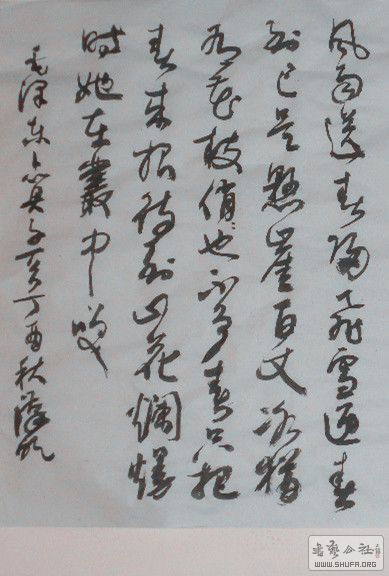 风雨送春归飞雪迎春
到已是悬崖百丈冰猶
有花枝俏〻也不争春只把
春来报待到山花爛熳
时她在叢中笑
毛泽东卜算子丁酉秋
書藝公社
WWW.SHUFA.ORG